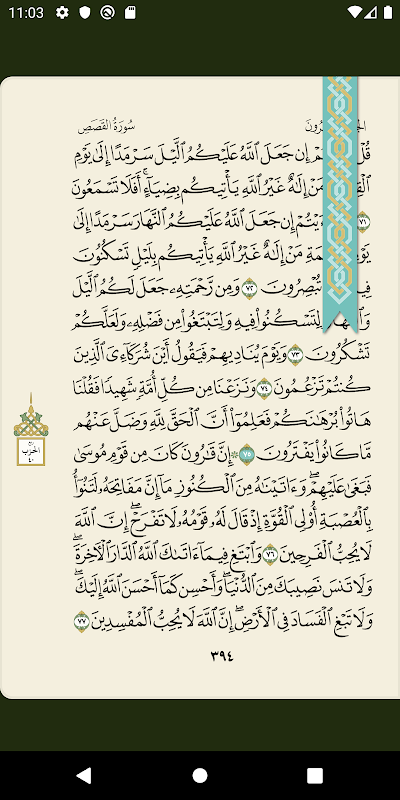 11:03
سُورَةُ القَصَصِ
إِن جَعَلَ ٱللَّهُ عَلَيْكُمُ ٱلَّيْلَ سَرْمَدًا إِلَىٰ يَوْمِ
مَنْ إِلَٰهٌ غَيْرُ ٱللَّهِ يَأْتِيكُم بِضِيَآءٍ ۖ أَفَلَا تَسْمَعُونَ
٧١ إِن جَعَلَ ٱللَّهُ عَلَيْكُمُ ٱلنَّهَارَ سَرْمَدًا إِلَىٰ
مَنْ إِلَٰهٌ غَيْرُ ٱللَّهِ يَأْتِيكُم بِلَيْلٍ تَسْكُنُونَ
تُبْصِرُونَ ٧٢ وَمِن رَّحْمَتِهِۦ جَعَلَ لَكُمُ ٱلَّيْلَ
لِتَسْكُنُوا۟ فِيهِ وَلِتَبْتَغُوا۟ مِن فَضْلِهِۦ وَلَعَلَّكُمْ
تَشْكُرُونَ ٧٣ وَيَوْمَ يُنَادِيهِمْ فَيَقُولُ أَيْنَ شُرَكَآءِىَ ٱلَّذِينَ
كُنتُمْ تَزْعُمُونَ ٧٤ وَنَزَعْنَا مِن كُلِّ أُمَّةٍ شَهِيدًا فَقُلْنَا
هَاتُوا۟ بُرْهَٰنَكُمْ فَعَلِمُوٓا۟ أَنَّ ٱلْحَقَّ لِلَّهِ وَضَلَّ عَنْهُم
مَّا كَانُوا۟ يَفْتَرُونَ ٧٥ ۞ إِنَّ قَٰرُونَ كَانَ مِن قَوْمِ مُوسَىٰ
فَبَغَىٰ عَلَيْهِمْ ۖ وَءَاتَيْنَٰهُ مِنَ ٱلْكُنُوزِ مَآ إِنَّ مَفَاتِحَهُۥ لَتَنُوٓأُ
بِٱلْعُصْبَةِ أُو۟لِى ٱلْقُوَّةِ إِذْ قَالَ لَهُۥ قَوْمُهُۥ لَا تَفْرَحْ ۖ إِنَّ ٱللَّهَ
لَا يُحِبُّ ٱلْفَرِحِينَ ٧٦ وَٱبْتَغِ فِيمَآ ءَاتَىٰكَ ٱللَّهُ ٱلدَّارَ ٱلْءَاخِرَةَ ۖ
وَلَا تَنسَ نَصِيبَكَ مِنَ ٱلدُّنْيَا ۖ وَأَحْسِن كَمَآ أَحْسَنَ ٱللَّهُ إِلَيْكَ ۖ
وَلَا تَبْغِ ٱلْفَسَادَ فِى ٱلْأَرْضِ ۖ إِنَّ ٱللَّهَ لَا يُحِبُّ ٱلْمُفْسِدِينَ ٧٧
الحزب
٤٠
٣٩٤